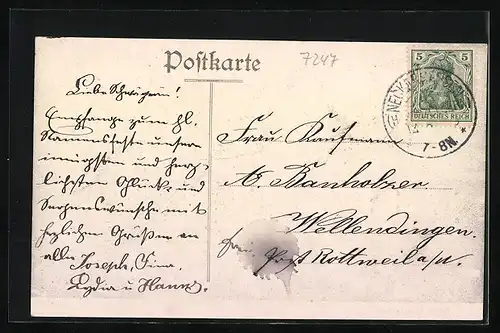 Postkarte
7247
5 5
DEUTSCHES REICH
7-8N.
Liebe Schwägerin!
Empfange zum hl.
Namensfeste unsere
innigsten und herz-
lichsten Glück- und
Segenswünsche mit
herzlichen Grüßen an
alle Joseph, Fina,
Lydia u Hanns.
Frau Kaufmann
A. Banholzer
Wellendingen.
Post Rottweil a/n.